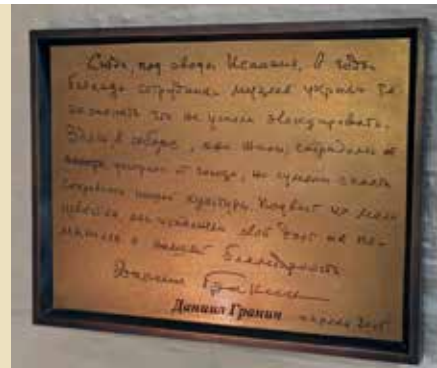 Сюда, под своды Исаакия, в годы
блокады сотрудники музеев укрыли
что не успели эвакуировать.
Здесь, в соборе, они жили, страдали от
умирали от голода, но сумели спасти
сокровища нашей культуры. Подвиг их мало
мы исполняем свой долг
и нашей
Даниил Гранин
Даниил Гранин апрель 2005